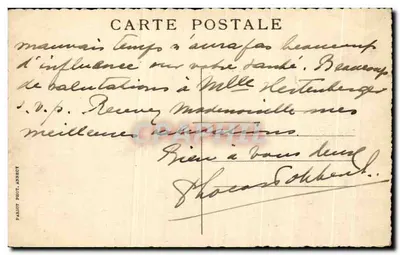 CARTE POSTALE
mauvais temps n'aura pas beaucoup
d'influence sur votre santé. Beaucoup
de salutations à Mlle Hertenberger
s.v.p. Recevez Mademoiselle mes
meilleures salutations.
Bien à vous deux
PARIOT PHOT. ANNECY